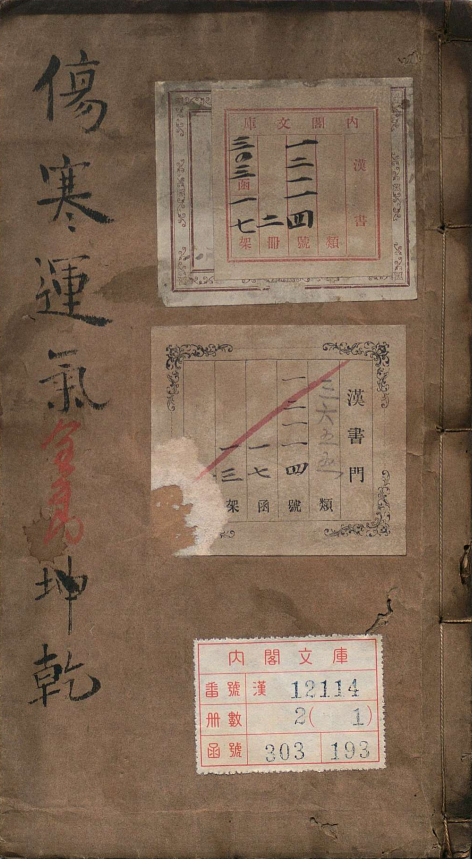 傷寒運氣
坤乾
内閣文庫
漢書類
一二一一四號
二冊
三〇三函一七架
漢書門
類
一二一一四號
一七函
一三架
内閣文庫
番號 漢 12114
冊數 2( 1)
函號 303 193